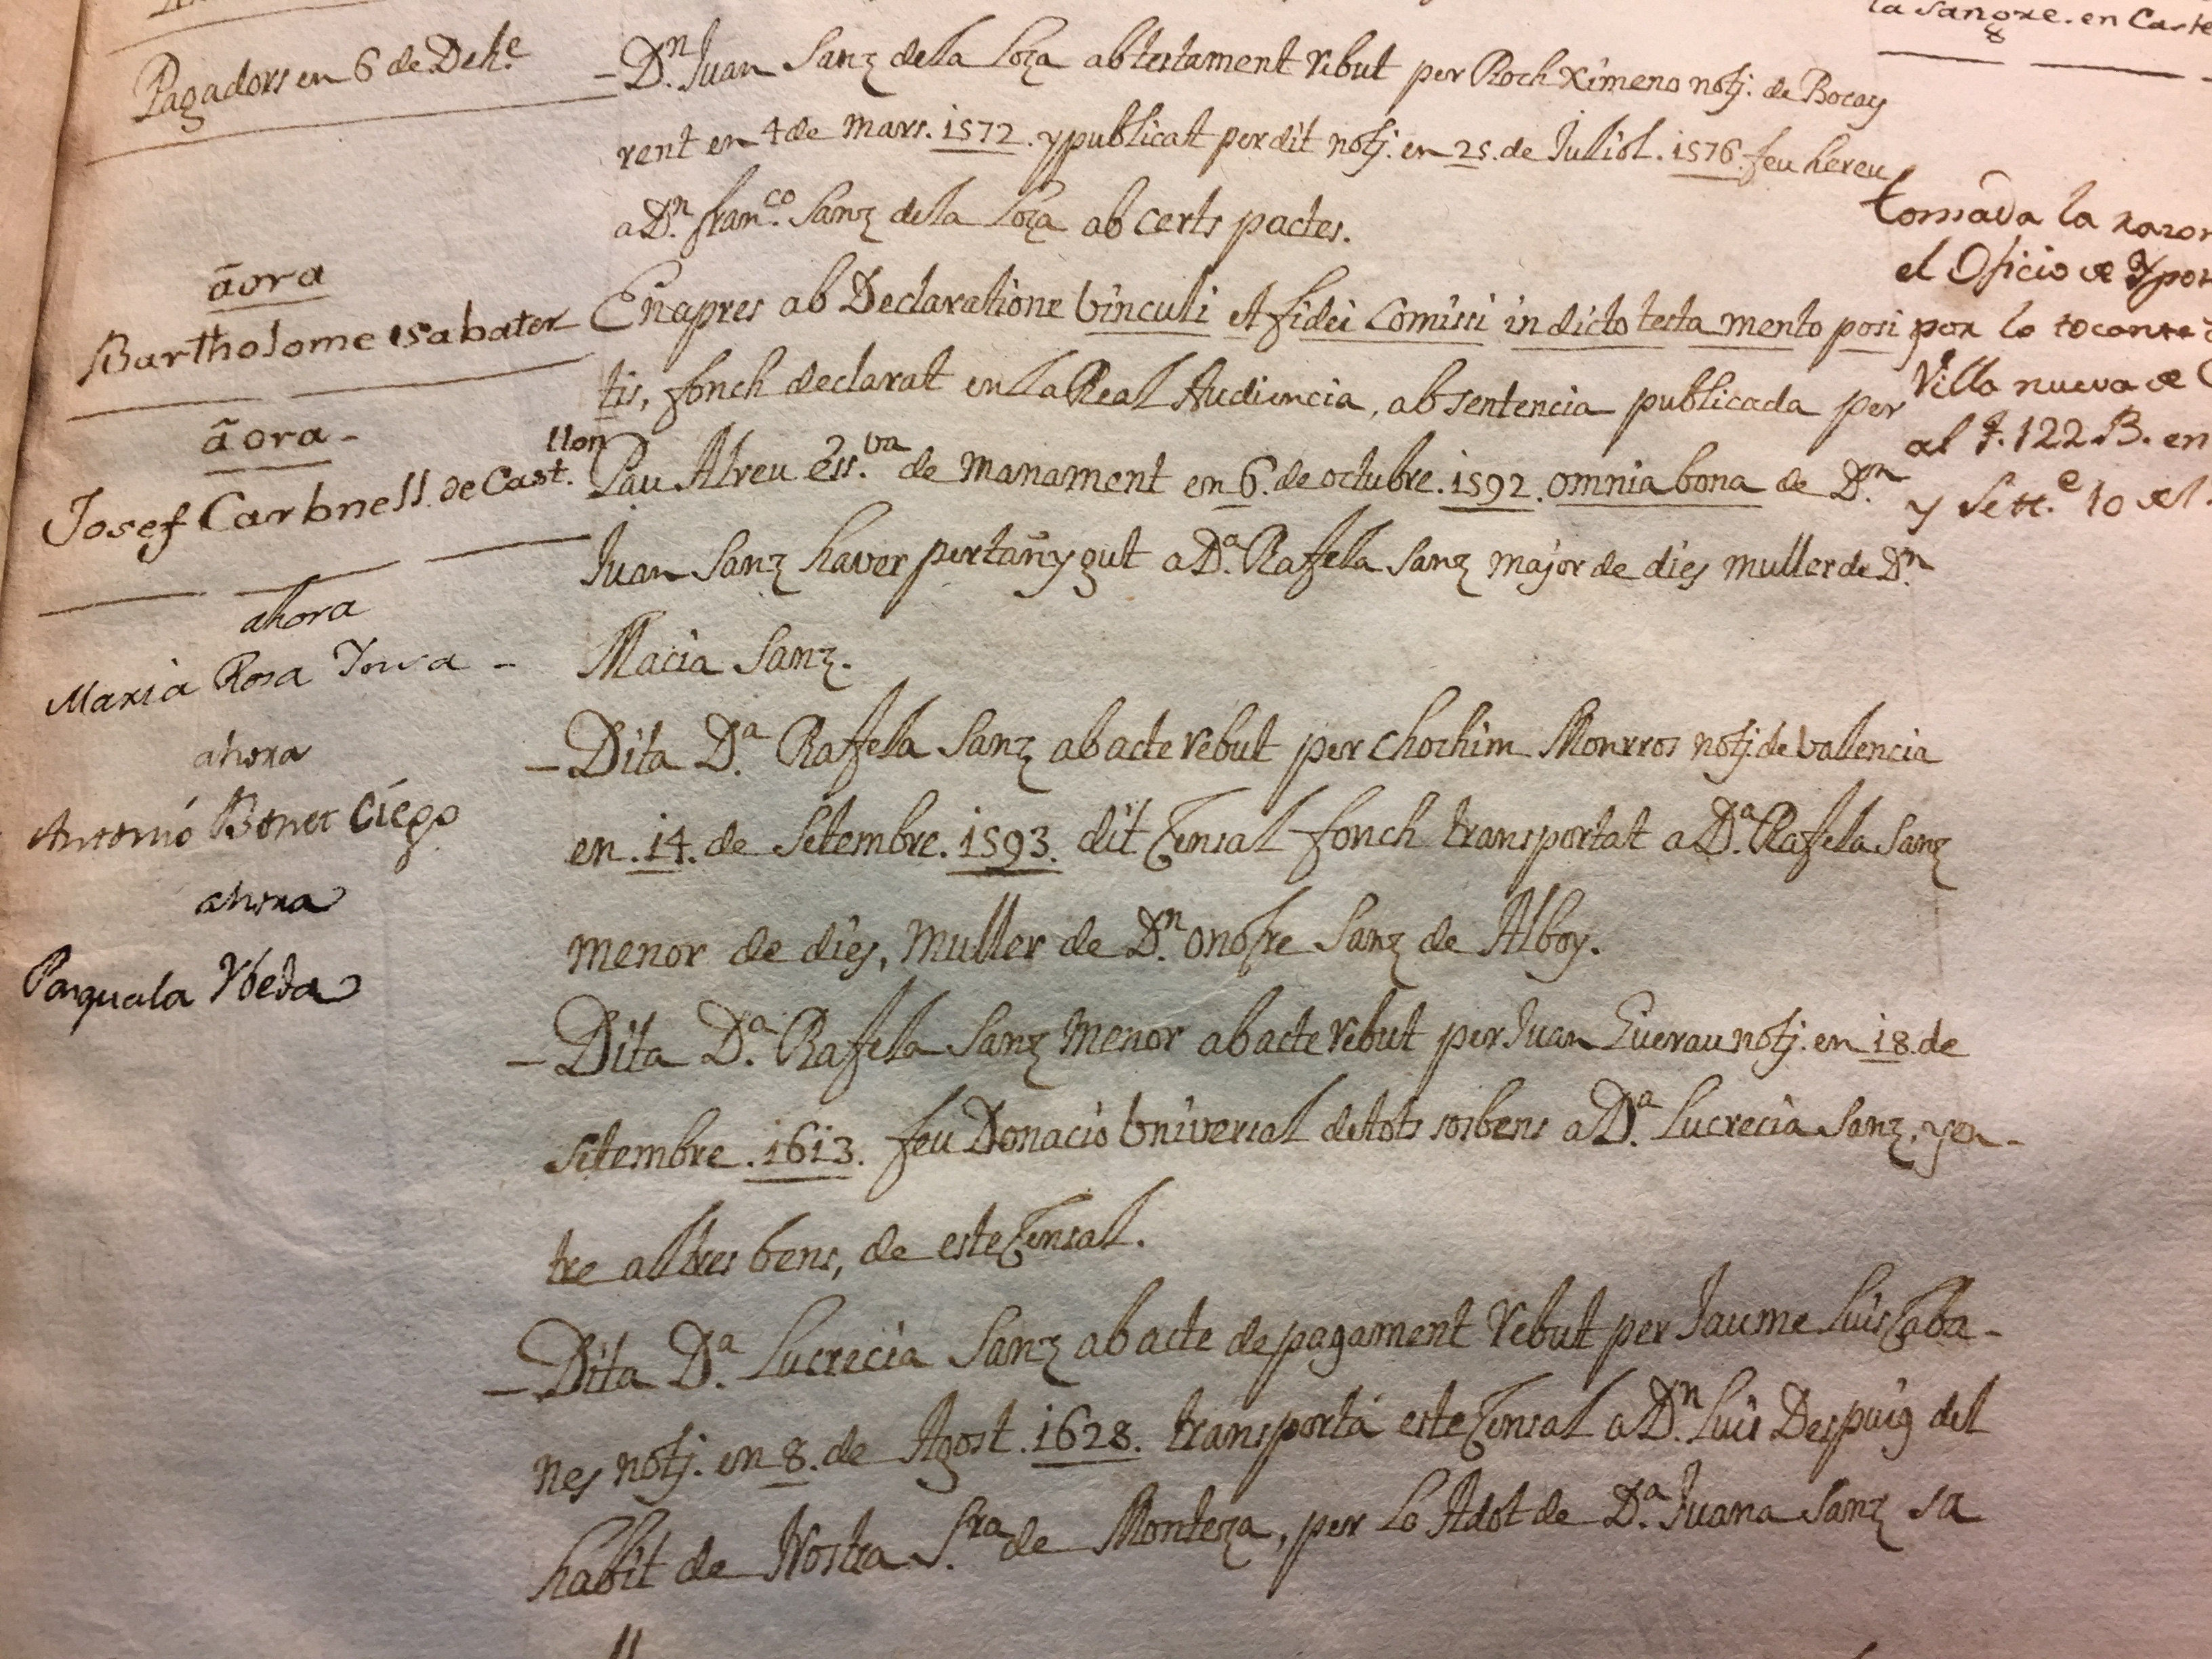 Pagadors en 6 de Dehe.
āora
Bartholome Sabater
āora -
llon
Josef Carbnell de Cast.
ahora
Maria Rosa
ahora
Antonio Bonet Ciego
ahora
Pasquala Ybeda
- Dn. Juan Sanz de la Loza ab testament rebut per Roch Ximeno notj. de Bocay
rent en 4 de Mars. 1572. y publicat per dit notj. en 25. de Juliol. 1576. feu hereu
a Dn. franco. Sanz de la Loza ab certs pactes.
Enapres ab Declaratione vinculi et fidei Comissi in dicto testamento posi
tis, fonch declarat en la Real Audiencia, ab sentencia publicada per
Pau Abreu Ess.va de manament en 6. de octubre. 1592. omnia bona de Dn.
Juan Sanz haver pertañygut a Da. Rafela Sanz major de dies muller de Dn.
Macia Sanz.
- Dita Da. Rafela Sanz ab acte rebut per Chochim Monrros notj. de Vallencia
en .14. de Setembre. 1593. dit Censal fonch transportat a Da. Rafela Sanz
menor de dies, muller de Dn. onofre Sanz de Alboy.
- Dita Da. Rafela Sanz menor ab acte rebut per Juan Guerau notj. en 18. de
Setembre. 1613. feu Donacio Universal de tots sos bens a Da. Lucrecia Sanz, y en-
tre altres bens, de este Censal.
- Dita Da. Lucrecia Sanz ab acte de pagament rebut per Jaume Luis Caba-
nes notj. en 8. de Agost. 1628. transportá este Censal a Dn. Luis Despuig del
habit de Nostra S.ra de Monteza, per lo Adot de Da. Juana Sanz sa
la Sangre. en Caste
tomada la razon
el Oficio de
por lo tocante
Villa nueva de
al f. 122 B. en
y Sett.e 10 del